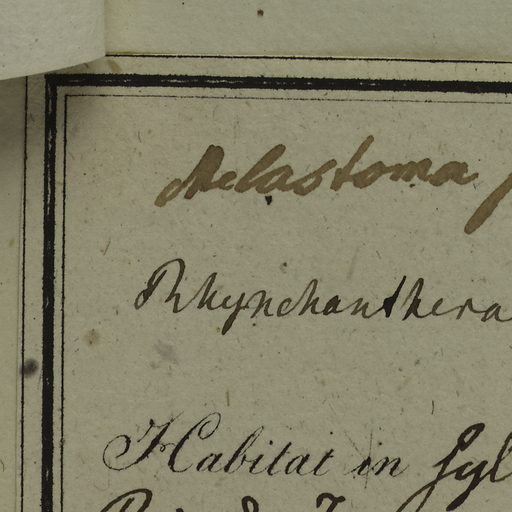 Melastoma
Rhynchanthera
Habitat in Syl